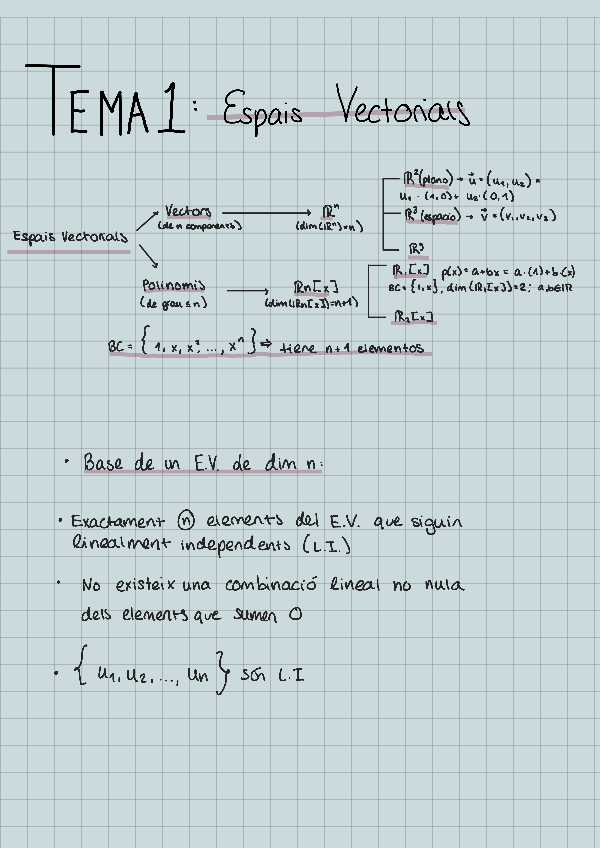 TEMA 1: Espais Vectorials
Espais Vectorials
Vectors
(de n components)
ℝⁿ
(dim(ℝⁿ)=n)
ℝ²(plano) → u⃗ = (u₁, u₂) =
u₁ · (1,0) + u₂·(0,1)
ℝ³(espacio) → v⃗ = (v₁, v₂, v₃)
ℝ³
Polinomis
(de grau ≤ n)
ℝn[x]
(dim(ℝn[x])=n+1)
ℝ₁[x] p(x) = a+bx = a·(1)+b·(x)
BC = {1,x}, dim(ℝ₁[x])=2; a,b∈ℝ
ℝ₂[x]
BC = {1, x, x², ..., xⁿ} ⇒ tiene n+1 elementos
• Base de un E.V. de dim n:
• Exactament n elements del E.V. que siguin
linealment independents (L.I.)
• No existeix una combinació lineal no nula
dels elements que sumen 0
• {u₁, u₂, ..., un} són L.I